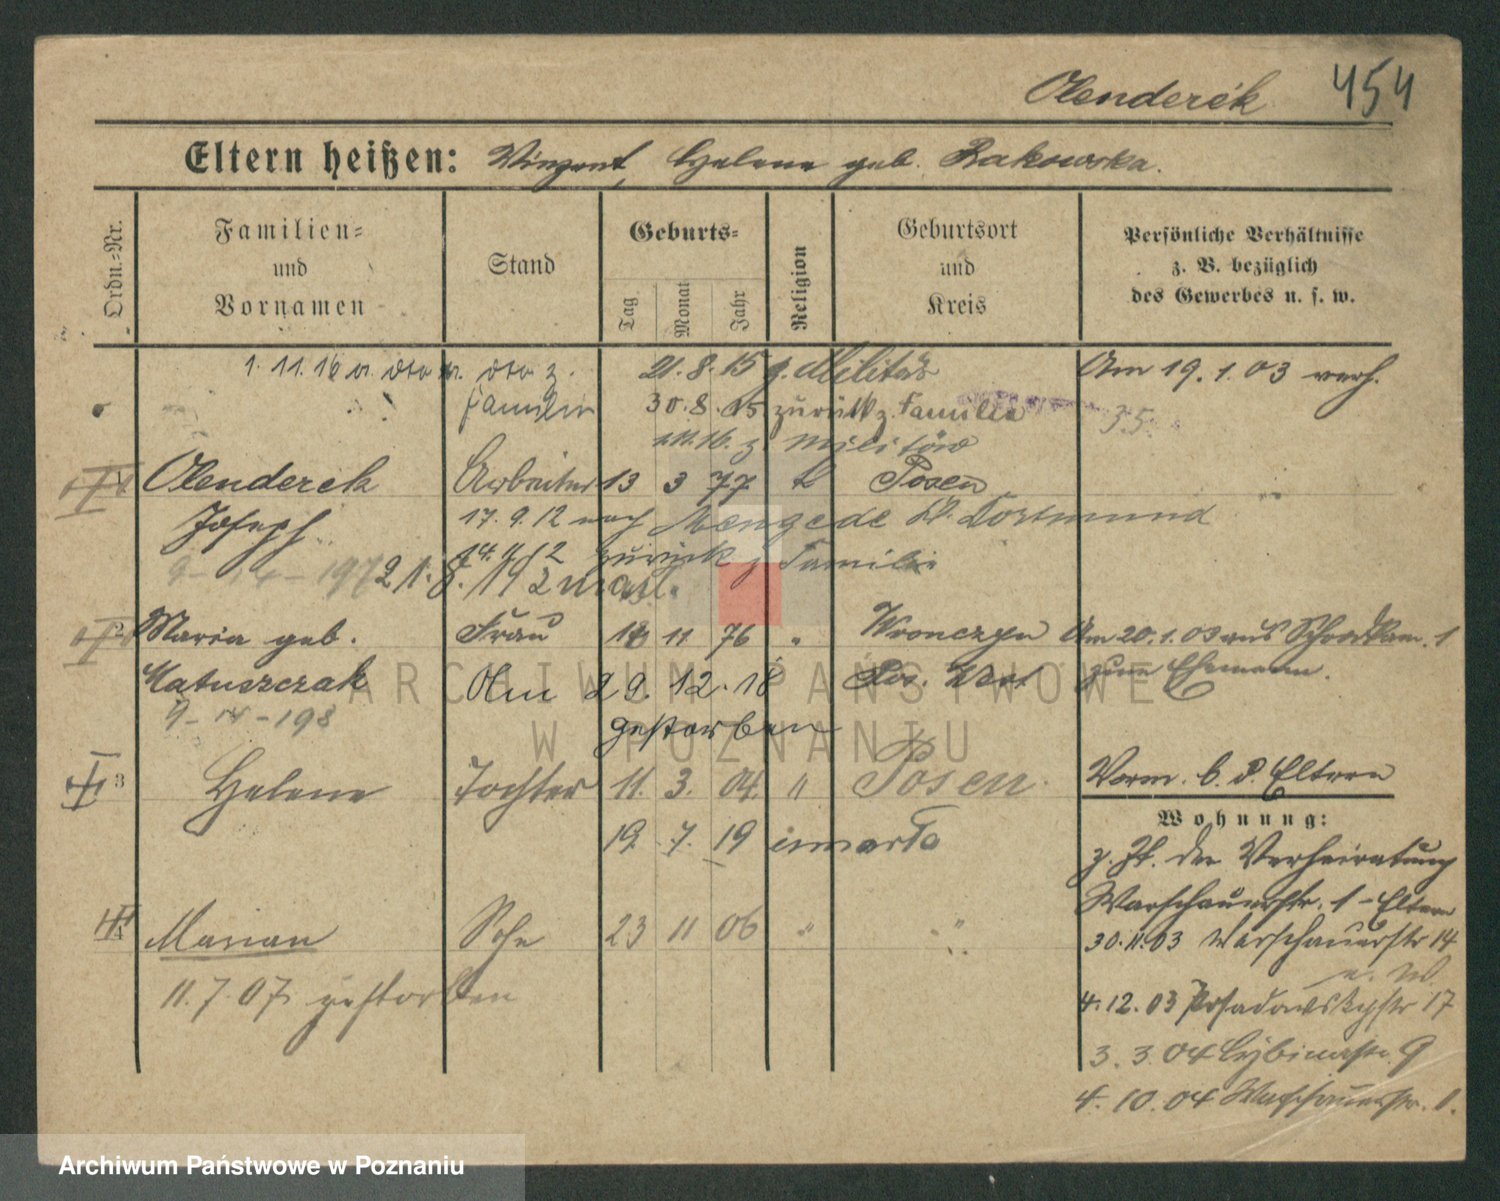 Olenderek 454
Eltern heißen: Vinzent, Helene geb. Rakowska.
Ordn.-Nr.
Familien- und Vornamen
Stand
Geburts-
Tag
Monat
Jahr
Religion
Geburtsort und Kreis
Persönliche Verhältnisse z. B. bezüglich des Gewerbes u. s. w.
1.11.16 z. Familie
21.8.15 z. Militär
30.8.15 zurück z. Familie
1.11.16. z. Militär
Am 19.1.03 verh.
35
1 Olenderek Arbeiter 13 3 77 k Posen
Joseph 17.9.12 nach Mengede Kr. Dortmund
zurück z. Familie
21.8.
2 Maria geb. Frau 11 76 " Wronczyn
Matuszczak Am 29.12.18 Pos. West
gestorben
Am 20.1.03 aus 1
zum Ehemann.
3 Helene Tochter 11. 3. 04. " Posen.
19. 7. 19 umarła
4 Marian Sohn 23 11 06 " "
11.7.07 gestorben
Vorm. b. d. Eltern
Wohnung:
z. Zt. der Verheiratung
Warschauerstr. 1 - Eltern
30.11.03 Warschauerstr 14
4.12.03 Posadowskystr 17
3.3.04 Cybinastr. 9
4.10.04 Warschauerstr. 1.
ARCHIWUM PAŃSTWOWE
W POZNANIU
Archiwum Państwowe w Poznaniu